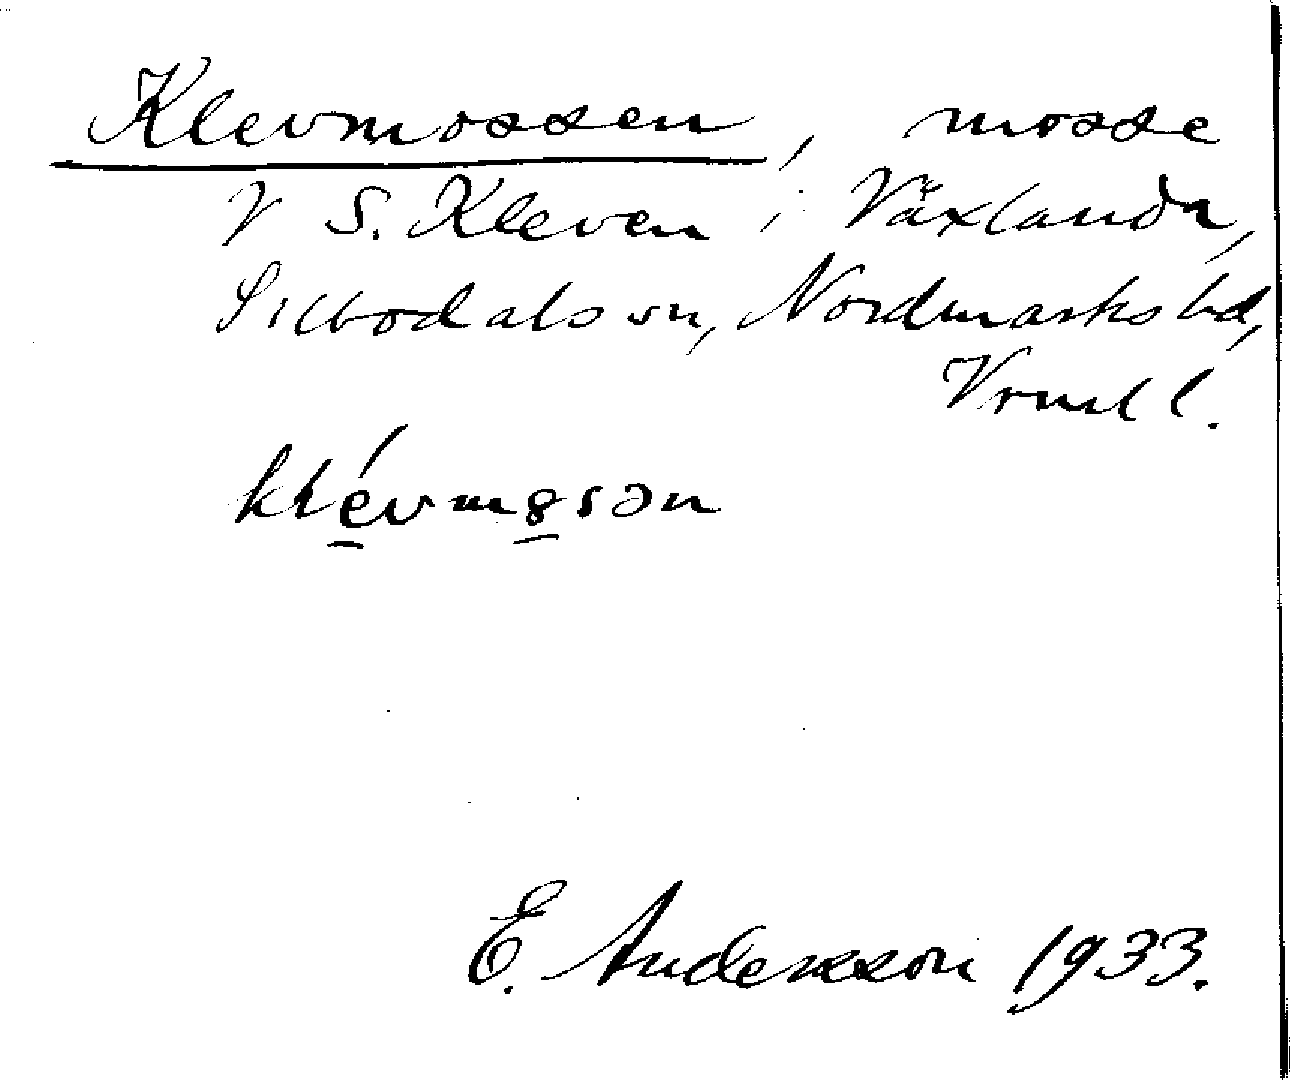 Klevmossen, mosse
V S. Kleven i Växlanda,
Silbodals sn, Nordmarks hd,
Vrml l.
klévmɵsən
E. Andersson 1933.